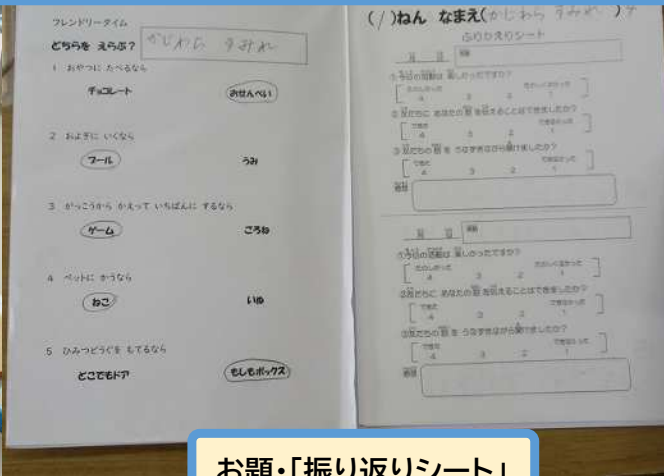 フレンドリータイム
どちらを えらぶ?
かじわら すみれ
1 おやつに たべるなら
チョコレート おせんべい
2 およぎに いくなら
プール うみ
3 がっこうから かえって いちばんに するなら
ゲーム ごろね
4 ペットに かうなら
ねこ いぬ
5 ひみつどうぐを もてるなら
どこでもドア もしもボックス
(1)ねん なまえ(かじわら すみれ)
ふりかえりシート
月 日
①今日の活動は 楽しかったですか?
たのしかった たのしくなかった
4 3 2 1
②友だちに あなたの話を伝えることはできましたか?
できた できなかった
4 3 2 1
③友だちの話を うなずきながら聞けましたか?
できた できなかった
4 3 2 1
感想
月 日
①今日の活動は 楽しかったですか?
たのしかった たのしくなかった
4 3 2 1
②友だちに あなたの話を伝えることはできましたか?
できた できなかった
4 3 2 1
③友だちの話を うなずきながら聞けましたか?
できた できなかった
4 3 2 1
感想
お題・「振り返りシート」